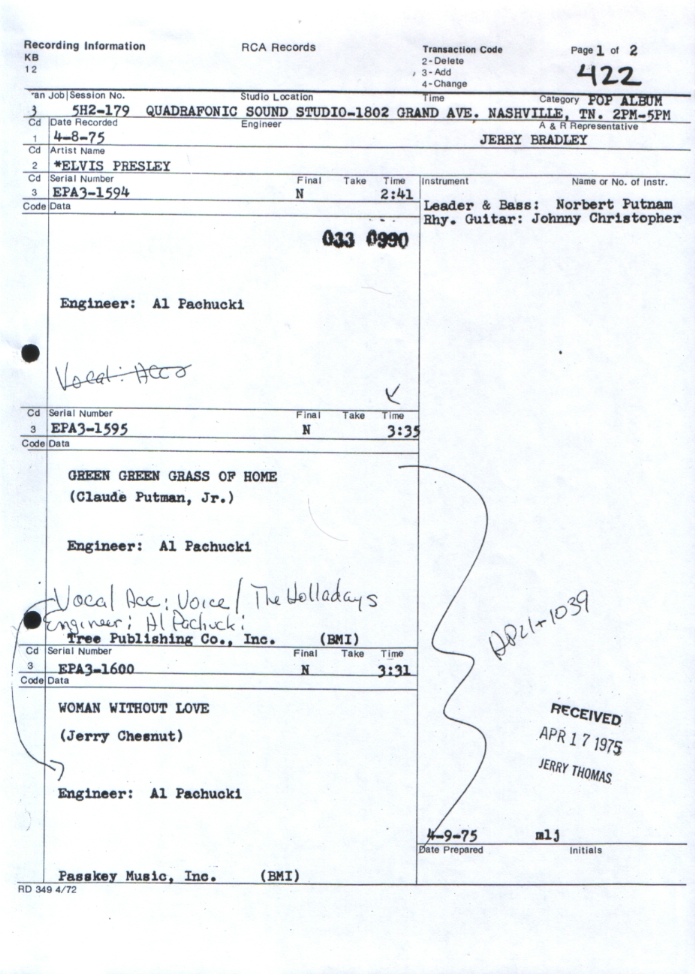 Recording Information RCA Records Transaction Code Page 1 of 2
KB 2-Delete
12 3-Add 422
4-Change
an Job Session No. Studio Location Time Category POP ALBUM
3 5H2-179 QUADRAFONIC SOUND STUDIO-1802 GRAND AVE. NASHVILLE, TN. 2PM-5PM
Cd Date Recorded Engineer A & R Representative
1 4-8-75 JERRY BRADLEY
Cd Artist Name
2 *ELVIS PRESLEY
Cd Serial Number Final Take Time Instrument Name or No. of Instr.
3 EPA3-1594 N 2:41 Leader & Bass: Norbert Putnam
Code Data Rhy. Guitar: Johnny Christopher
033 0990
Engineer: Al Pachucki
Vocal: Acc
Cd Serial Number Final Take Time
3 EPA3-1595 N 3:35
Code Data
GREEN GREEN GRASS OF HOME
(Claude Putman, Jr.)
Engineer: Al Pachucki
Vocal Acc: Voice/ The Holladays
Engineer: Al Pachucki
Tree Publishing Co., Inc. (BMI)
APL1-1039
Cd Serial Number Final Take Time
3 EPA3-1600 N 3:31
Code Data
WOMAN WITHOUT LOVE
(Jerry Chesnut)
RECEIVED
APR 17 1975
JERRY THOMAS
Engineer: Al Pachucki
4-9-75 mlj
Date Prepared Initials
Passkey Music, Inc. (BMI)
RD 349 4/72